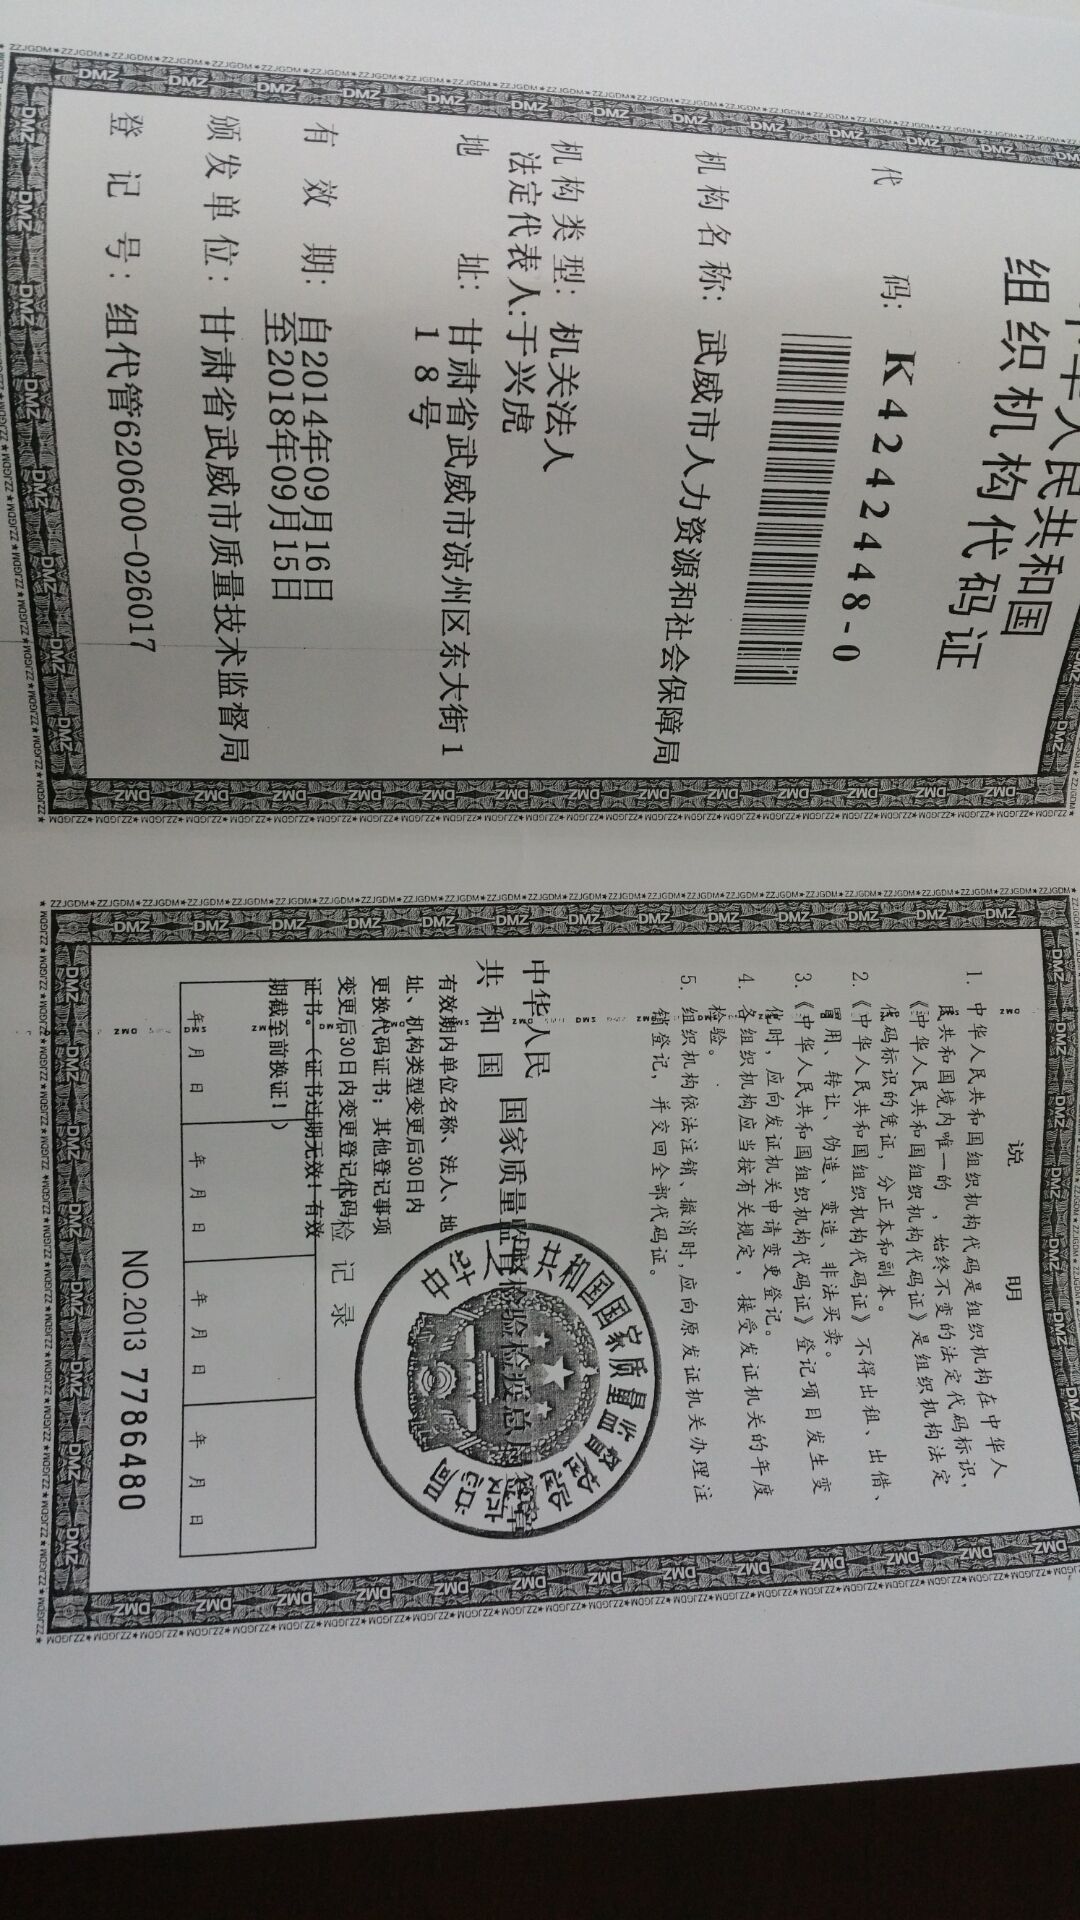 中华人民共和国
组织机构代码证
代 码: K4242448-0
机构名称: 武威市人力资源和社会保障局
机构类型: 机关法人
法定代表人: 于兴虎
地 址: 甘肃省武威市凉州区东大街1
18号
有 效 期: 自2014年09月16日
至2018年09月15日
颁发单位: 甘肃省武威市质量技术监督局
登 记 号: 组代管620600-026017
说 明
1. 中华人民共和国组织机构代码是组织机构在中华人
民共和国境内唯一的、始终不变的法定代码标识,
《中华人民共和国组织机构代码证》是组织机构法定
代码标识的凭证,分正本和副本。
2.《中华人民共和国组织机构代码证》不得出租、出借、
冒用、转让、伪造、变造、非法买卖。
3.《中华人民共和国组织机构代码证》登记项目发生变
化时,应向发证机关申请变更登记。
4. 各组织机构应当按有关规定,接受发证机关的年度
检验。
5. 组织机构依法注销、撤消时,应向原发证机关办理注
销登记,并交回全部代码证。
中华人民
共 和 国 国家质量监督检验检疫总局签章
中华人民共和国国家质量监督检验检疫总局
有效期内单位名称、法人、地
址、机构类型变更后30日内
更换代码证书;其他登记事项
变更后30日内变更登记代码
证书。(证书过期无效!有效
期截至前换证!)
年检记录
年 月 日
年 月 日
年 月 日
年 月 日
NO.2013 7786480